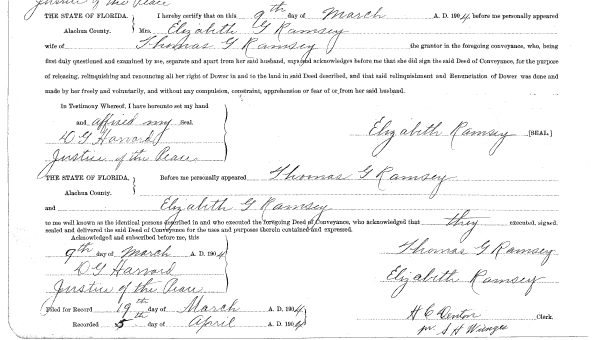 Justice of the Peace
THE STATE OF FLORIDA, } I hereby certify that on this 9th day of March A. D. 1904 before me personally appeared
Alachua County. Mrs. Elizabeth G Ramsey
wife of Thomas G Ramsey the grantor in the foregoing conveyance, who, being
first duly questioned and examined by me, separate and apart from her said husband, says and acknowledges before me that she did sign the said Deed of Conveyance, for the purpose
of releasing, relinquishing and renouncing all her right of Dower in and to the land in said Deed described, and that said relinquishment and Renunciation of Dower was done and
made by her freely and voluntarily, and without any compulsion, constraint, apprehension or fear of or from her said husband.
In Testimony Whereof, I have hereunto set my hand
and affixed my Seal.
D G Harvard
Justice of the Peace
Elizabeth Ramsey [SEAL.]
THE STATE OF FLORIDA, } Before me personally appeared Thomas G Ramsey
Alachua County.
and Elizabeth G Ramsey
to me well known as the identical persons described in and who executed the foregoing Deed of Conveyance, who acknowledged that they executed, signed,
sealed and delivered the said Deed of Conveyance for the uses and purposes therein contained and expressed.
Acknowledged and subscribed before me, this
9th day of March A. D. 1904
D G Harvard
Justice of the Peace
Thomas G Ramsey
Elizabeth Ramsey
Filed for Record 19th day of March A. D. 1904
Recorded 5th day of April A. D. 1904
H C Denton Clerk.
pr S H Wienges